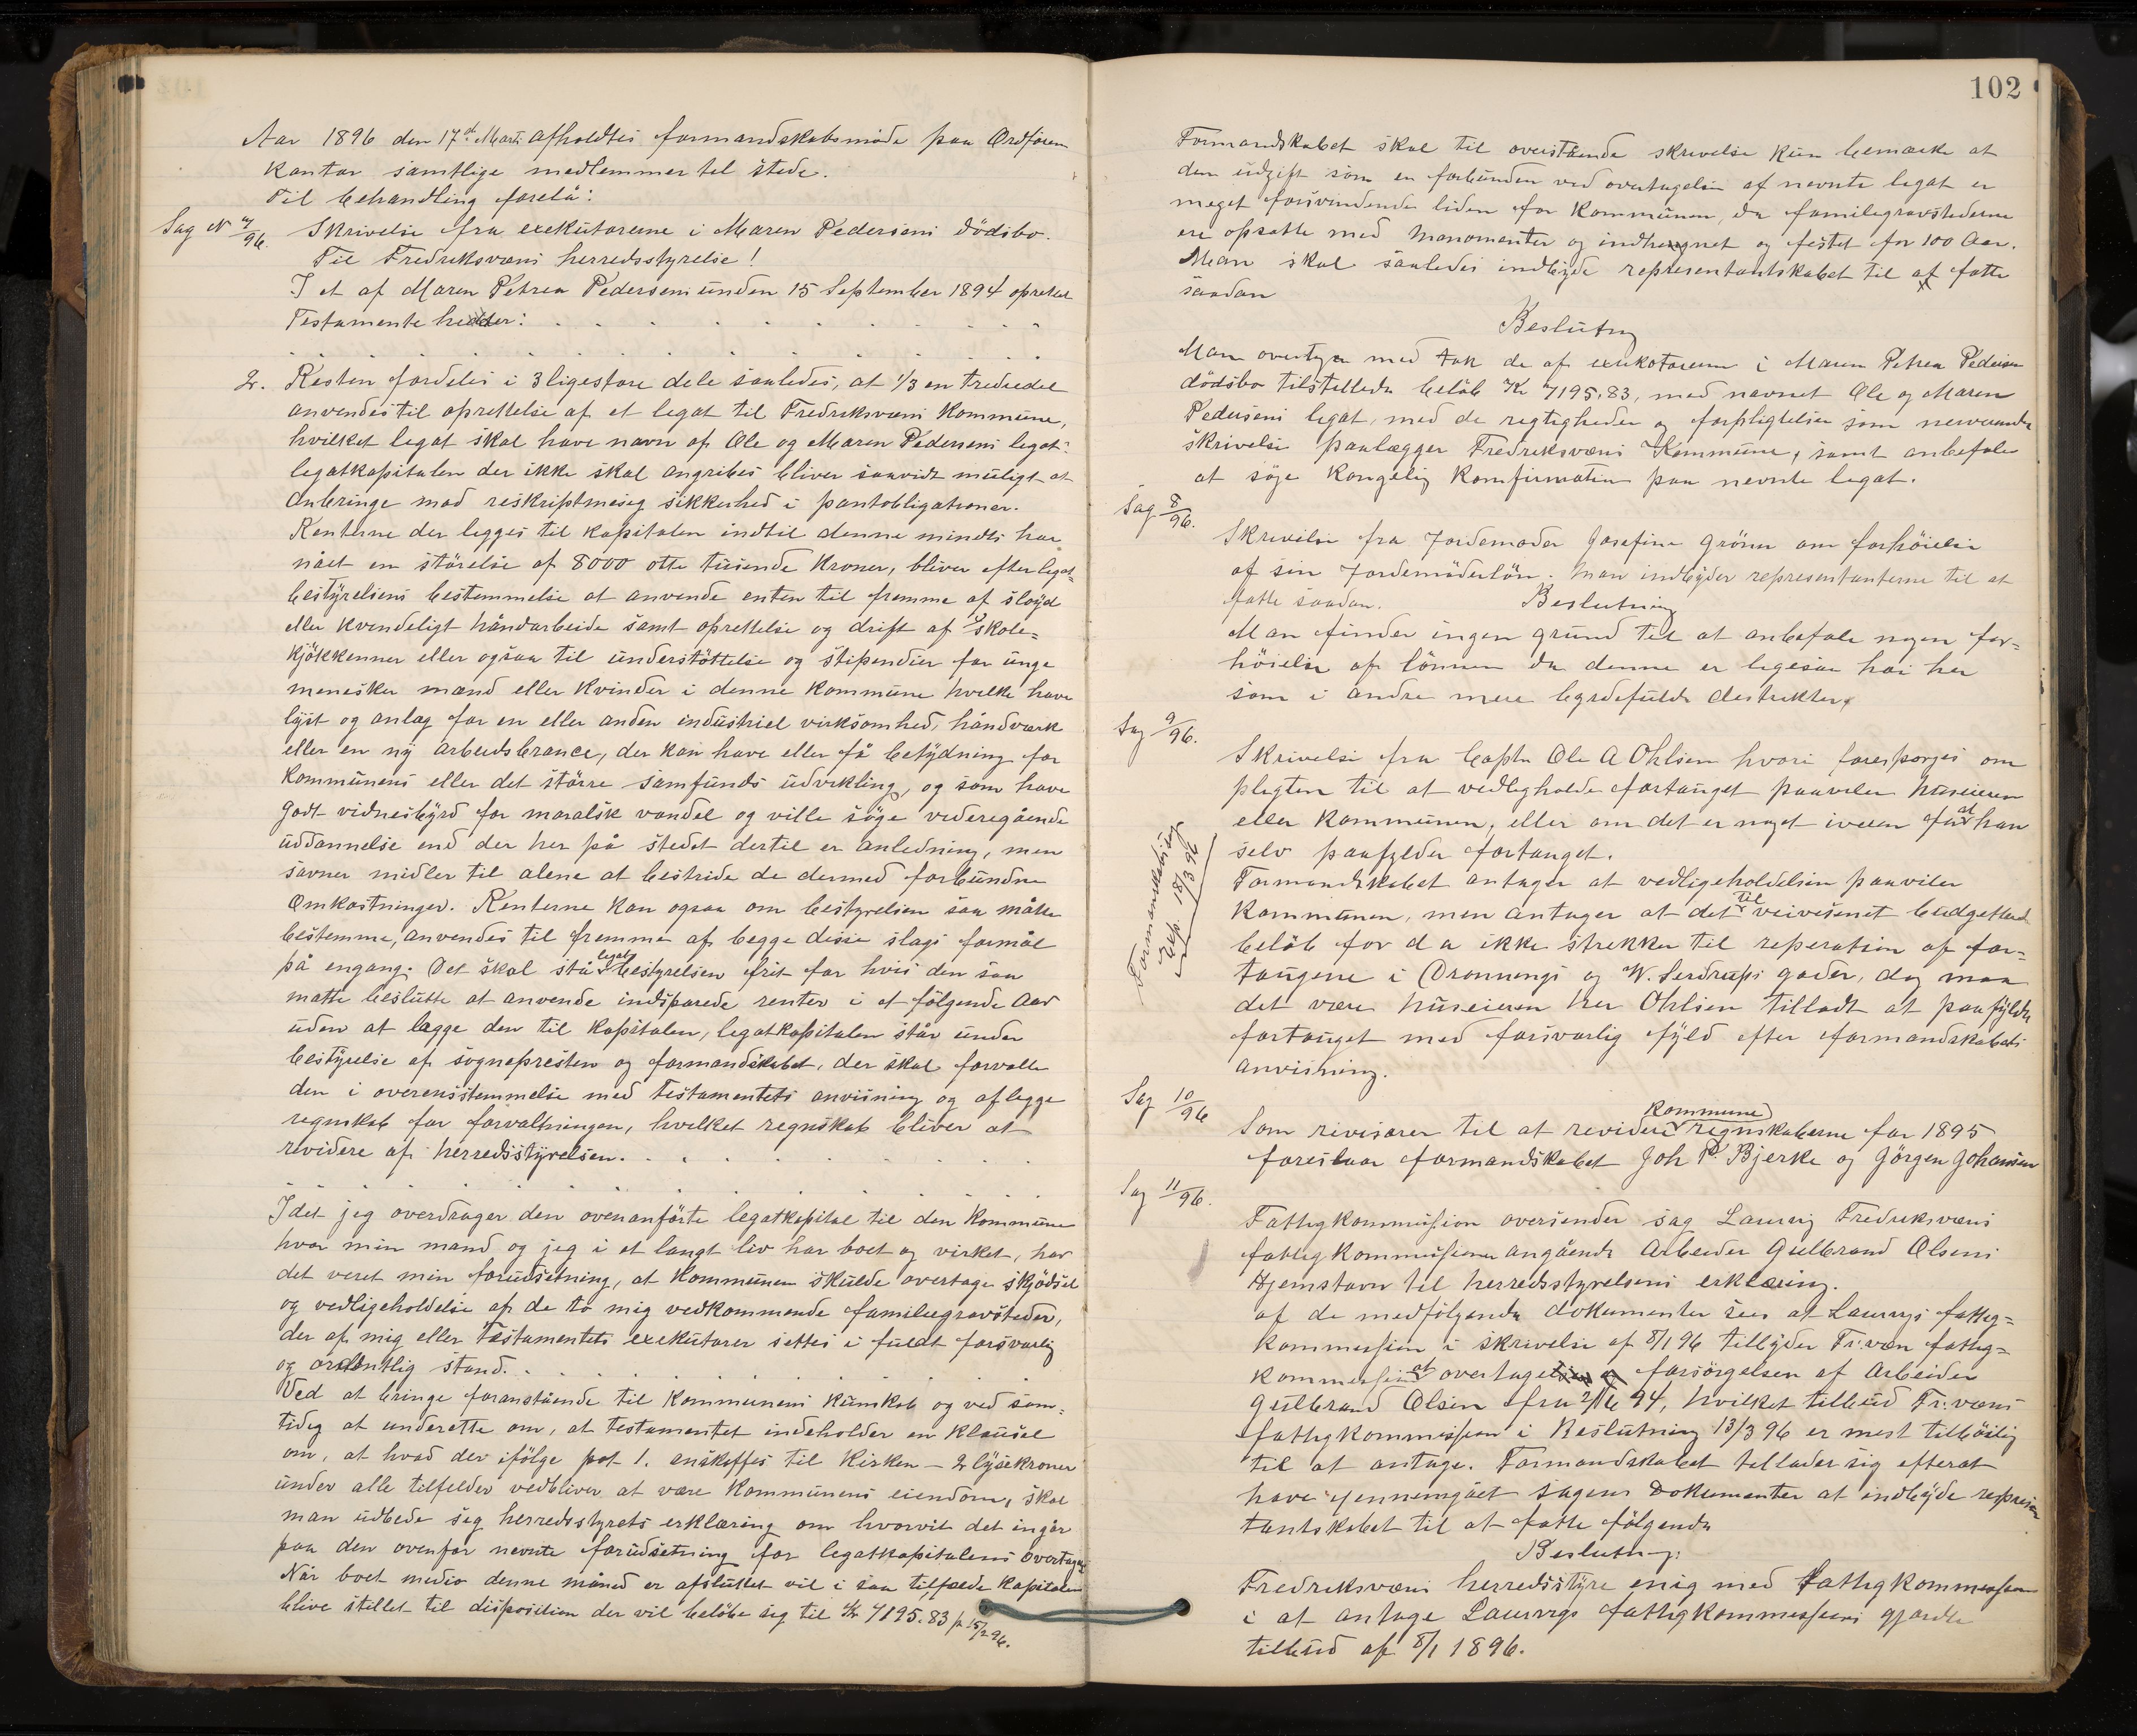 Aar 1896 den 17de Marts afholdtes formandskabsmöde paa Ordförer
kontor samtlige medlemmer tel stede.
Til behandling forelå:
Sag N 7/96. Skrivelse fra exekutorerne i Maren Pedersens dödsbo.
Til Fredriksværns herredsstyrelse!
I et af Maren Petrea Pedersens under 15 September 1894 oprettet
Testamente hedder:
2. Resten fordeles i 3 ligestore dele saaledes, at 1/3 en trediedel
anvendes til oprettelse af et legat til Fredriksværns Kommune,
hvilket legat skal have navn af Ole og Maren Pedersens legat:
legatkapitalen der ikke skal angribes bliver saavidt muligt at
anbringe mod reskriptmæsig sikkerhed i pantobligationer.
Renterne der legges til kapitalen indtil denne mindst har
nået en störelse af 8000 otte tusende Kroner, bliver efter legat-
bestyrelsens bestemmelse at anvende enten til fremme af slöyd
eller kvindeligt håndarbeide samt oprettelse og drift af skole=
kjökkenner eller ogsaa til understöttelse og stipendier for unge
menesker mænd eller kvinder i denne kommune hvilke have
lyst og anlag for en eller anden industriel virksomhed, håndværk
eller en ny arbeidsbrance, der kan have eller få betydning for
Kommunens eller det större samfunds udvikling, og som have
godt vidnesbyrd for moralsk vandel og ville söge videregående
uddannelse end der her på stedet dertil er anledning, men
savner midler til alene at bestride de dermed forbundne
Omkostninger. Renterne kan ogsaa om bestyrelsen saa måtte
bestemme, anvendes til fremme af begge disse slags formål
på engang. Det skal stå legatbestyrelsen frit for hvis den saa
matte beslutte at anvende indsparede renter i et fölgende Aar
uden at lægge den til kapitalen, legatkapitalen står under
bestyrelse af sognepresten og formandskabet, der skal forvalte
den i overensstemmelse med testamentets anvisning og aflegge
regnskab for forvaltningen, hvilket regnskab bliver at
revidere af herredsstyrelsen.
Idet jeg overdrager den ovenanförte legatkapital til den Kommune
hvor min mand og jeg i et langt liv har boet og virket, har
det veret min forudsetning, at Kommunen skulde overtage skjödsel
og vedligeholdelse af de to mig vedkommende familiegravsteder,
der af mig eller Testamentets exekutorer settes i fuldt forsvarlig
og ordentlig stand.
Ved at bringe foranstående til Kommunens kundskab og ved sam=
tidig at underette om, at testamentet indeholder en klausul
om, at hvad der ifölge post 1. anskaffes til Kirken – 2 lysekroner
under alle tilfelder vedbliver at være Kommunens eiendom, skal
man udbede sig herredsstyrets erklæring om hvorvit det ingår
paa den ovenfor nevnte forudsetning for legatkapitalens overtagelse
Når boet medio denne måned er afsluttet vil i saa tilfælde kapitalen
blive stillet til disposition der vil belöbe sig til Kr 7195.83 pr 15/2 96.
102
Formandskabet skal til overstående skrivelse kun bemærke at
den udgift som er forbunden ved overtagelsen af nevnte legat er
meget forsvindende liden for kommunen, da familegravstederne
ere opsatte med Monomenter og indhegnet og festet for 100 Aar.
Man skal saaledes indbyde representantskabet til at fatte
saadan
Beslutng
Man overtager med tak de af exekotorerne i Maren Petrea Pedersen
dödsbo tilstillede belöb Kr 7195,83, med navnet Ole og Maren
Pedersens legat, med de regtigheder og forpligtelser som nerværende
skrivelse paalægger Fredriksværns Kommune, samt anbefaler
at söge Kongelig Konfirmation paa nevnte legat.
Sag 8/96.
Skrivelse fra Jordemoder Josefine Grönn om forhöielse
af sin Jordemöderlön. Man indbyder representanterne til at
fatte saadan. Beslutning
Man finder ingen grund til at anbefale nogen for=
höielse af lönnen da denne er ligesaa höi her
som i andre mere byrdefulde destrikter.
Sag 9/96.
Skrivelse fra Captn Ole A Ohlsen hvori forespörges om
plegten til at vedligeholde fortauget paaviler huseieren
eller kommunen, eller om det er noget iveien for at han
selv paafylder fortauget.
Formandskabet antager at vedligeholdelsen paaviler
kommunen, men antager at det til veivesenet budgetterede
belöb for da ikke strekker til reperation af for=
taugene i Dronnings og W. Serdrups gader, dog maa
det være huseieren her Ohlsen tilladt at paafylde
fortauget med forsvarlig fyld efter formandskabets
anvisning.
Formandskabets
18/3 96
Sag 10/96
Som rivisorer til at revidere kommuneregnskaberne for 1895
foreslaar formandskabet Joh P. Bjerke og Jörgen Johansen
Sag 11/96.
Fattigkommission oversender sag Laurvig Fredriksværns
fattigkommissioner angående Arbeider Gulbrand Olsens
Hjemstavn til herredsstyrelsens erklæring.
af de medfölgende dokumenter sees at Laurvigs fattig=
kommission i skrivelse af 8/1 96 tilbyder Fr:værn fattig=
kommission at overtage forsörgelsen af Arbeider
Gulbrand Olsen fra 94, hvilket tilbud Fr:værns
fattigkommission i Beslutning 13/3 96 er mest tilböielig
til at antage. Formandskabet tellader sig efterat
have gennemgået sagens Dokumenter at indbyde represen
tantskabet til at fatte fölgende
Beslutng:
Fredriksværns herredsstyre enig med Fattigkommission
i at antage Laurvigs fattigkommissions gjorde
tilbud af 8/1 1896.